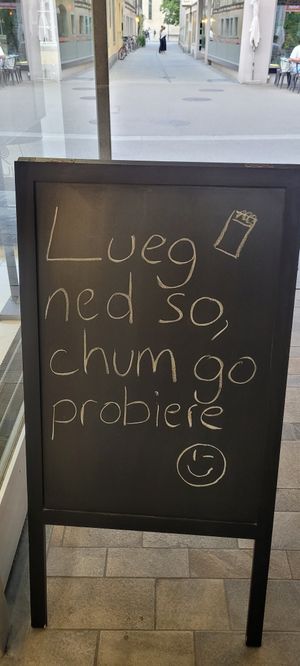 Lueg
ned so,
chum go
probiere